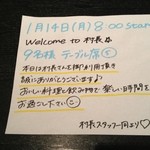 1月14日(月) 8:00 start
Welcome to 村長
9名様 テーブル席
本日は村長さんを御利用頂き
誠にありがとうございます♪
おいしい料理と飲み物で楽しい時間を
お過ごし下さい
村長スタッフ一同より♡